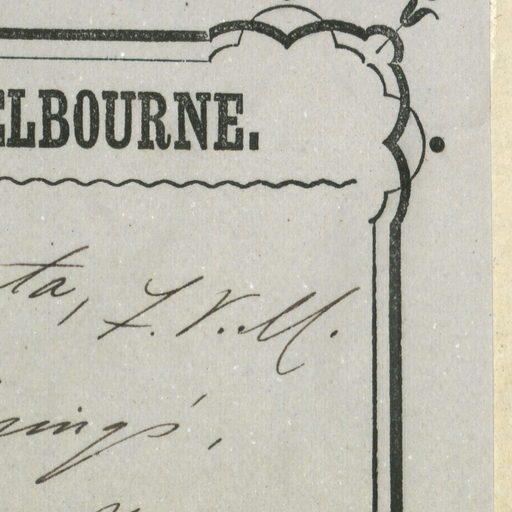 ELBOURNE.
ta, F. V. M.
rings',